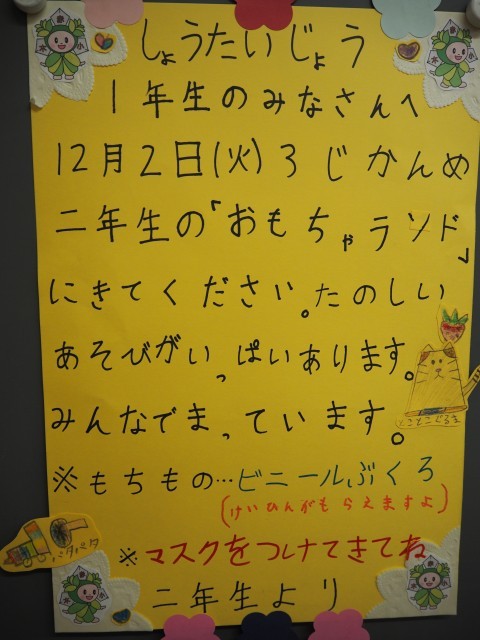 しょうたいじょう
1年生のみなさんへ
12月2日(火)3じかんめ
二年生の「おもちゃランド」
にきてください。たのしい
あそびがいっぱいあります。
みんなでまっています。
※もちもの…ビニールぶくろ
(けいひんがもらえますよ)
※マスクをつけてきてね
二年生より
とことこぐるま
パタパタ